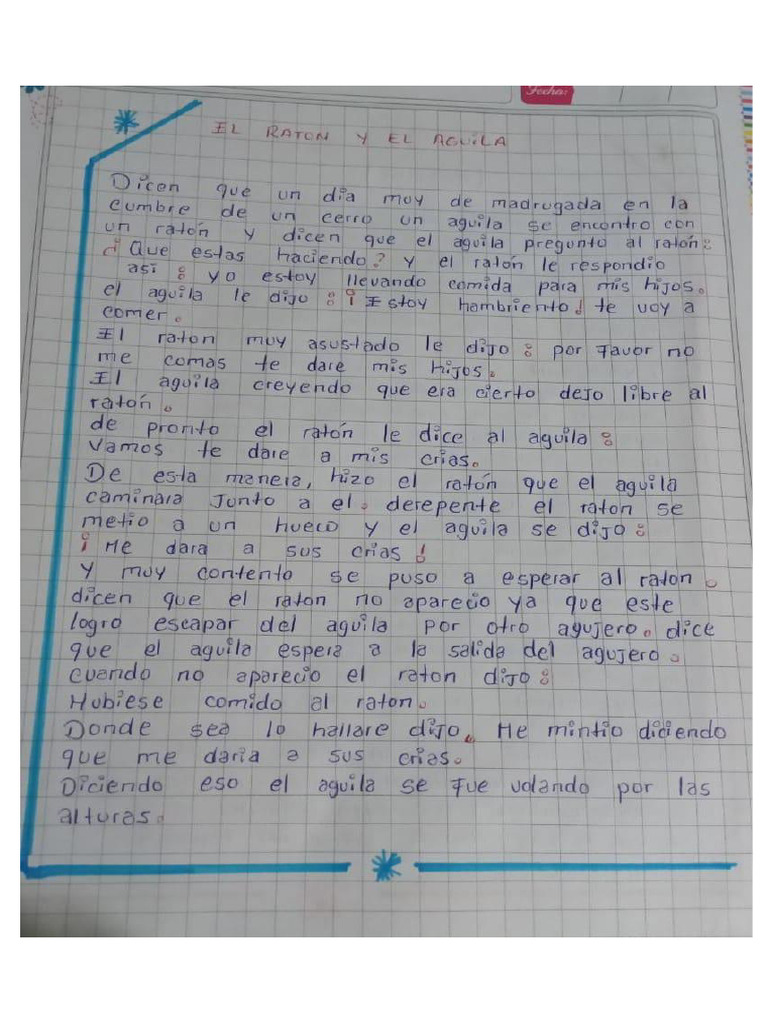 Fecha:
EL RATON Y EL AGUILA
Dicen que un día muy de madrugada en la
cumbre de un cerro un aguila se encontro con
un ratón y dicen que el aguila pregunto al ratón:
¿Que estas haciendo? Y el ratón le respondio
asi: yo estoy llevando comida para mis hijos.
el aguila le dijo: ¡Estoy hambriento! te voy a
comer.
El raton muy asustado le dijo: por favor no
me comas te dare mis hijos.
El aguila creyendo que era cierto dejo libre al
ratón.
de pronto el ratón le dice al aguila:
vamos te dare a mis crias.
De esta manera, hizo el ratón que el aguila
caminara junto a el. derepente el raton se
metio a un hueco y el aguila se dijo:
¡Me dara a sus crias!
Y muy contento se puso a esperar al raton.
dicen que el raton no aparecio ya que este
logro escapar del aguila por otro agujero. dice
que el aguila espera a la salida del agujero.
cuando no aparecio el raton dijo:
Hubiese comido al raton.
Donde sea lo hallare dijo. Me mintio diciendo
que me daria a sus crias.
Diciendo eso el aguila se fue volando por las
alturas.